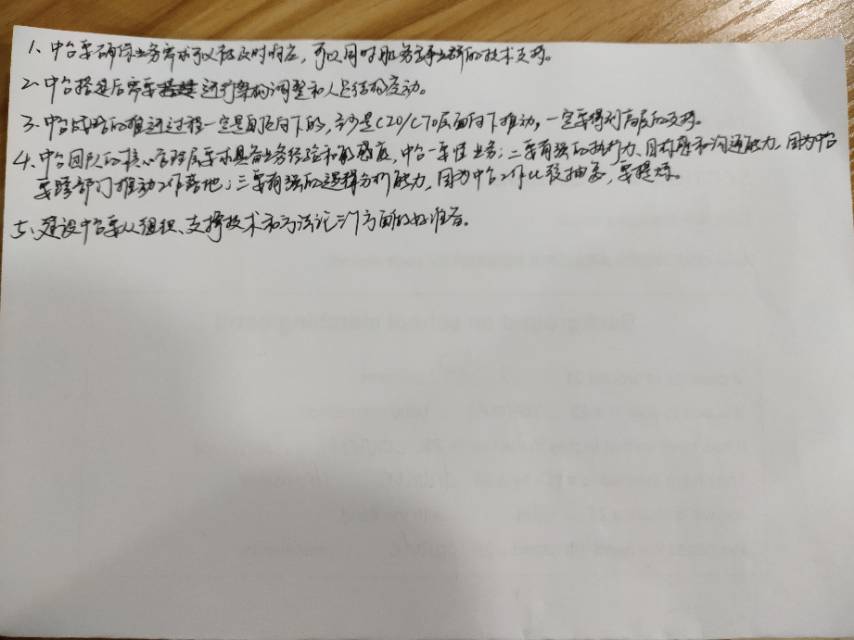 1、中台要确保业务需求可以被及时响应，可以同时服务多业务的技术支持。
2、中台搭建后需要进行架构调整和人员结构变动。
3、中台战略的推进过程一定是自顶向下的，至少是CEO/CTO层面向下推动，一定要得到高层的支持。
4、中台团队的核心管理层要求具备业务经验和敏感度，中台一要懂业务；二要有强的执行力、目标感和沟通能力，因为中台
要跨部门推动工作落地；三要有强的逻辑分析能力，因为中台工作比较抽象，要提炼。
5、建设中台要从组织、支撑技术和方法论三个方面做好准备。